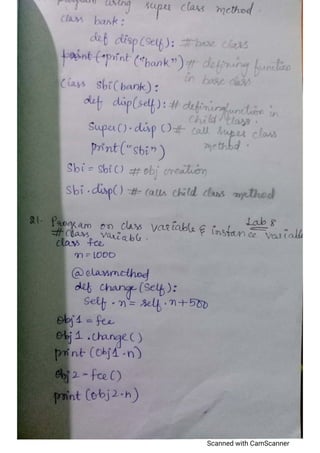 program using super class method.
class bank:
def disp(self): # base class
print("bank") # defining function
in base class
class sbi(bank):
def disp(self): # defining function in
child class.
super().disp() # call super class
method.
print("sbi")
sbi = sbi() # obj creation
sbi.disp() # calls child class method
Lab 8
21. Program on class variable & instance variable
# class variable.
class fee
n=1000
@classmethod
def change(self):
self.n = self.n+500
obj1 = fee
obj1.change()
print(obj1.n)
obj2 = fee()
print(obj2.n)
Scanned with CamScanner